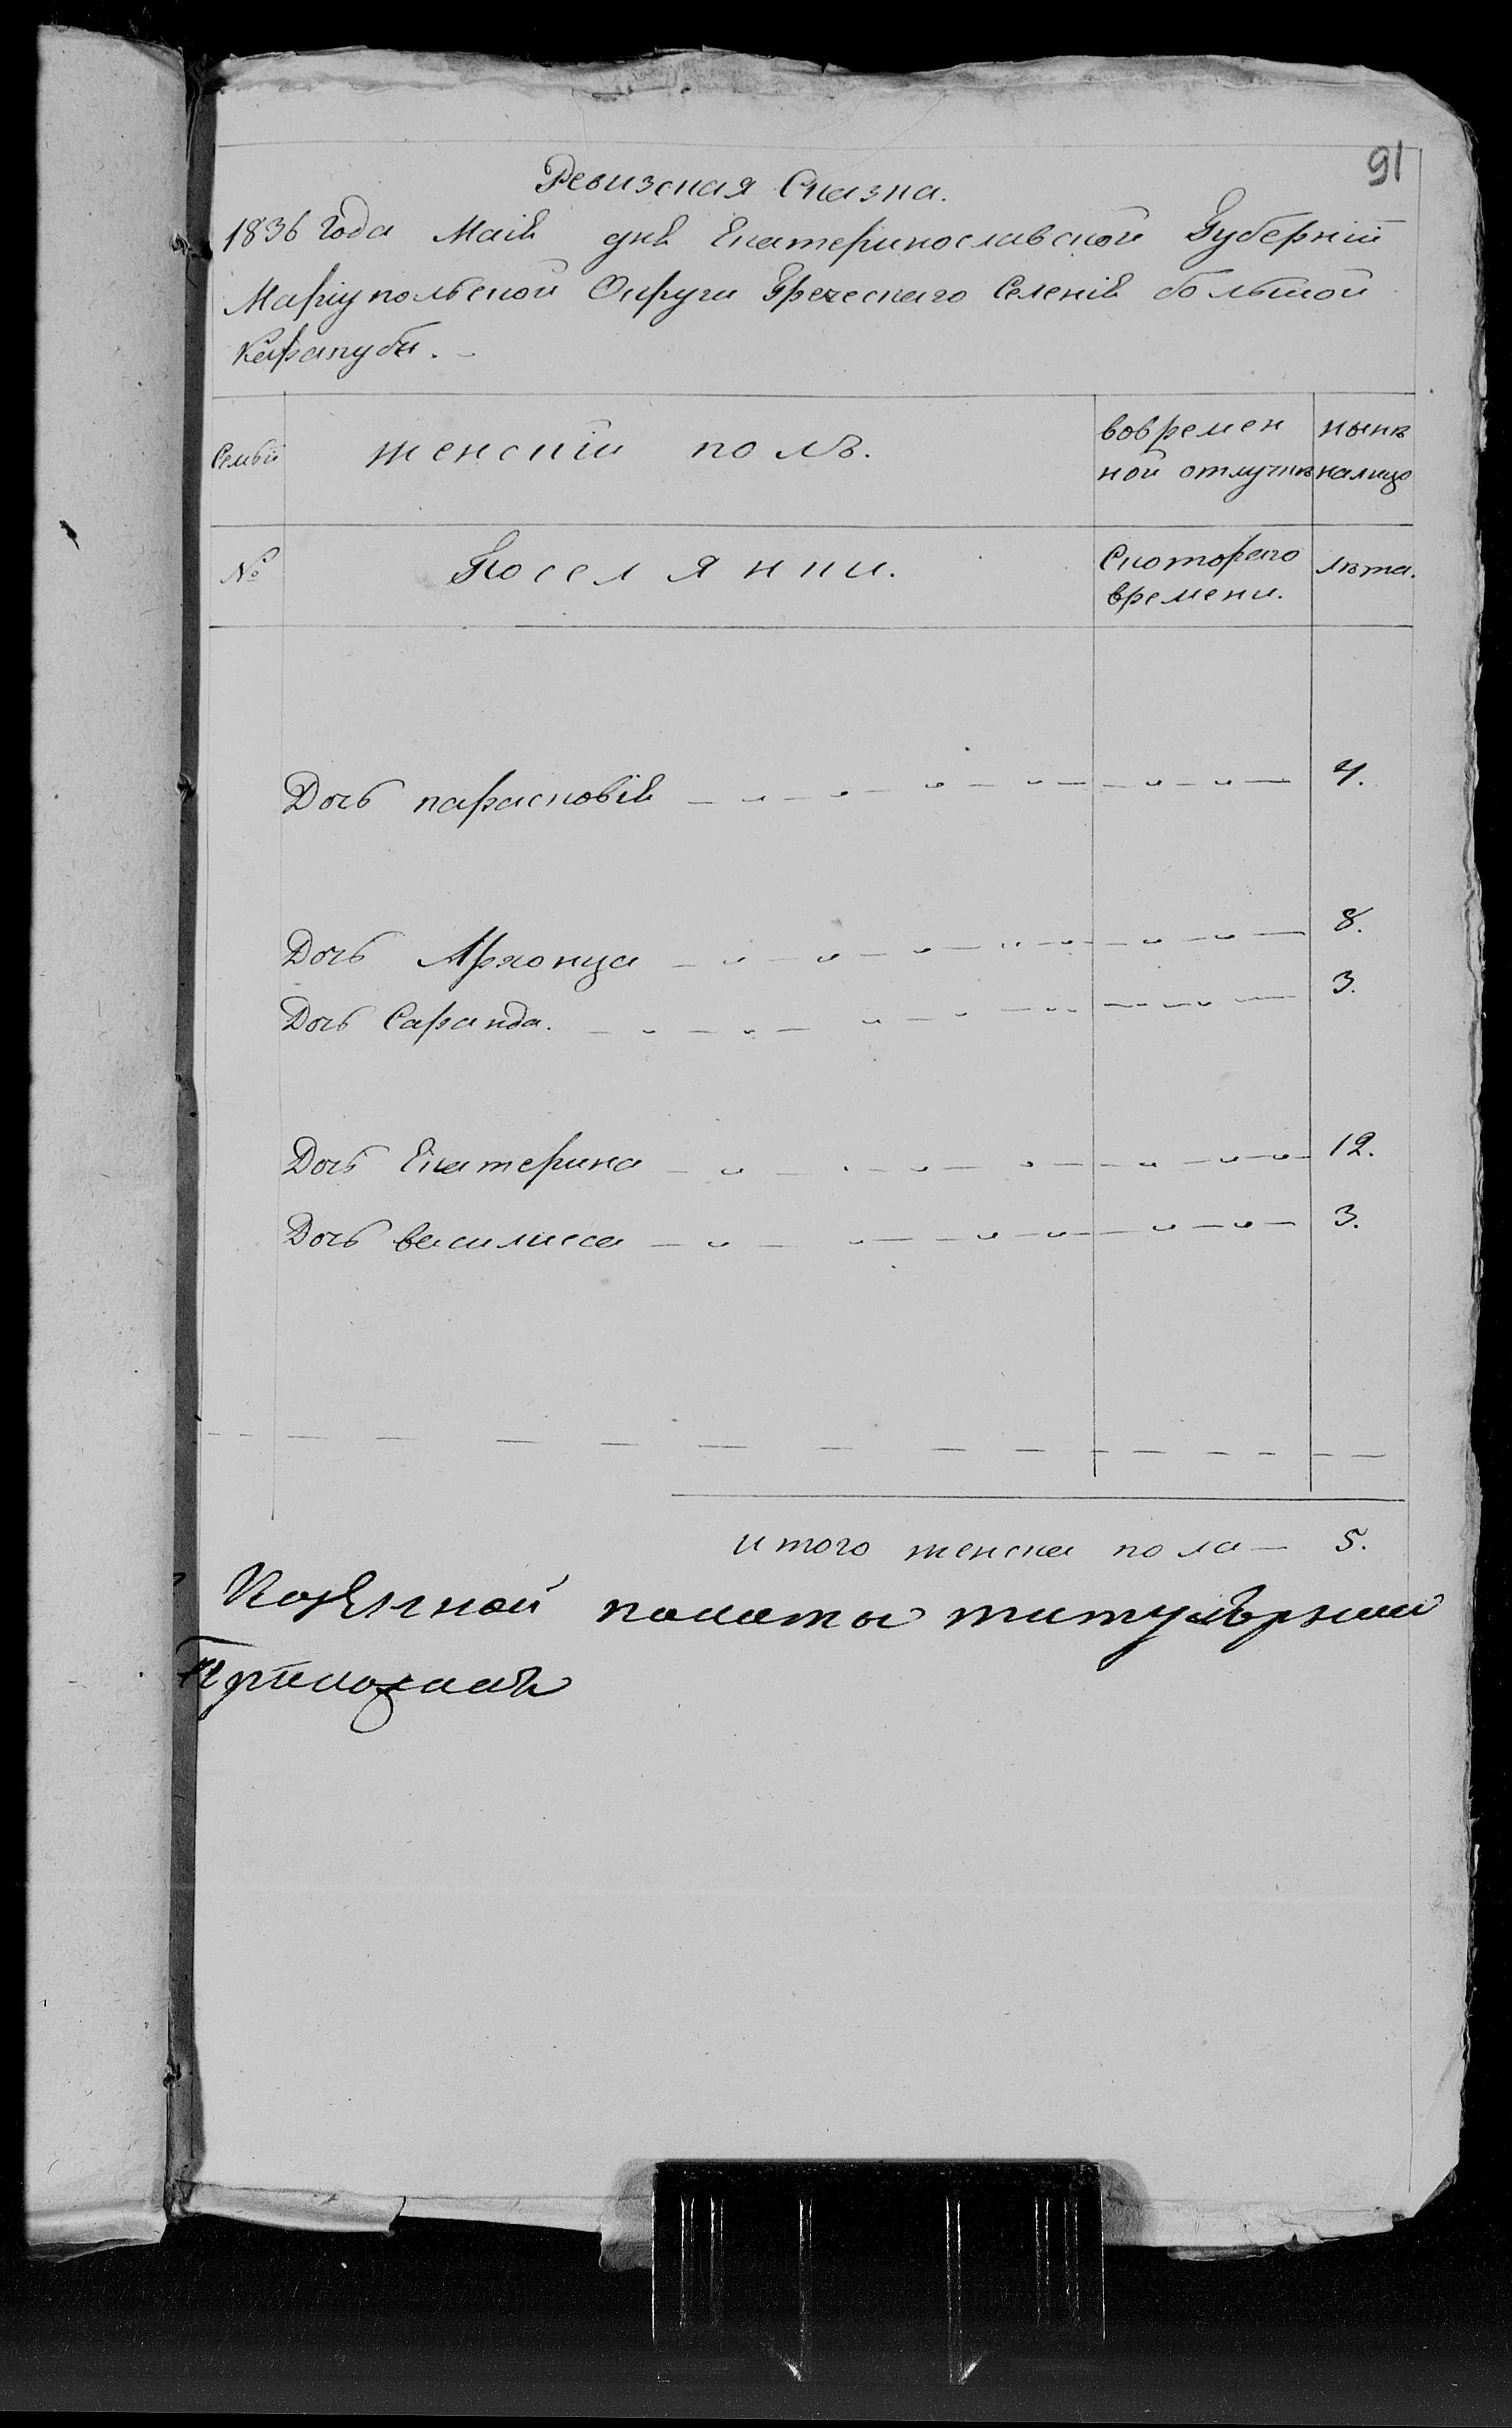 91
Ревизская Сказка.
1836 Года Маія дня Екатеринославской Губерніи
Маріупольской Округи Греческаго Селенія большой
Каракубы.
Семьи женскій полъ. вовремен ной отлучкѣ нынѣ налицо
№ Поселянки. Скотораго времени. лѣта.
Дочь парасковія 4.
Дочь Архонца 8.
Дочь Саранда. 3.
Дочь Екатерина 12.
Дочь василиса 3.
итого женска пола 5.
Казенной палаты титулярный